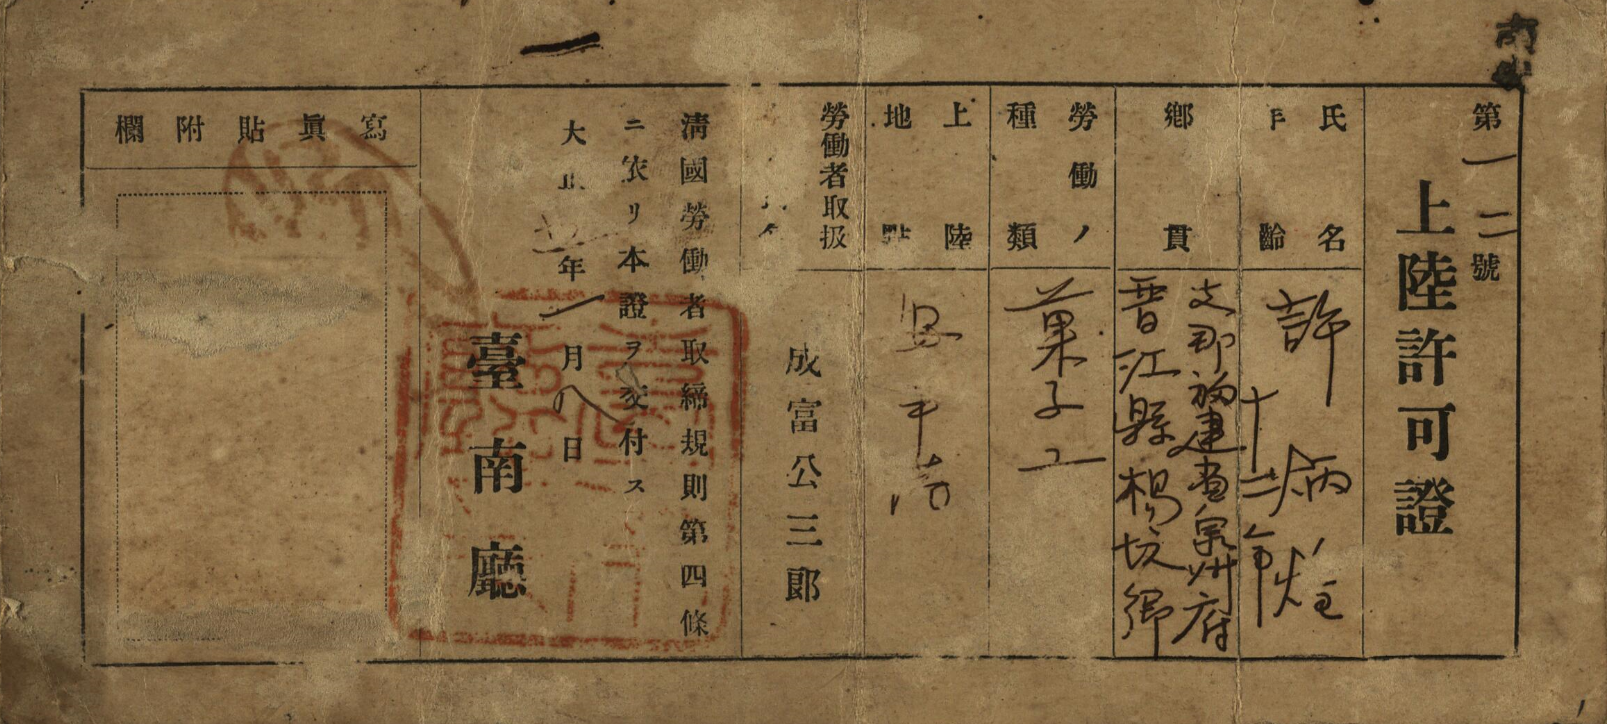 第一二號
上陸許可證
氏名
年齡
許炳炷
十二年
鄕貫
支那福建省泉州府
晋江縣楊坑鄉
勞働ノ
種類
菓子工
上陸
地點
安平港
勞働者取扱
成富公三郞
淸國勞働者取締規則第四條
ニ依リ本證ヲ交付ス
大正年一月八日
臺南廳
寫眞貼附欄